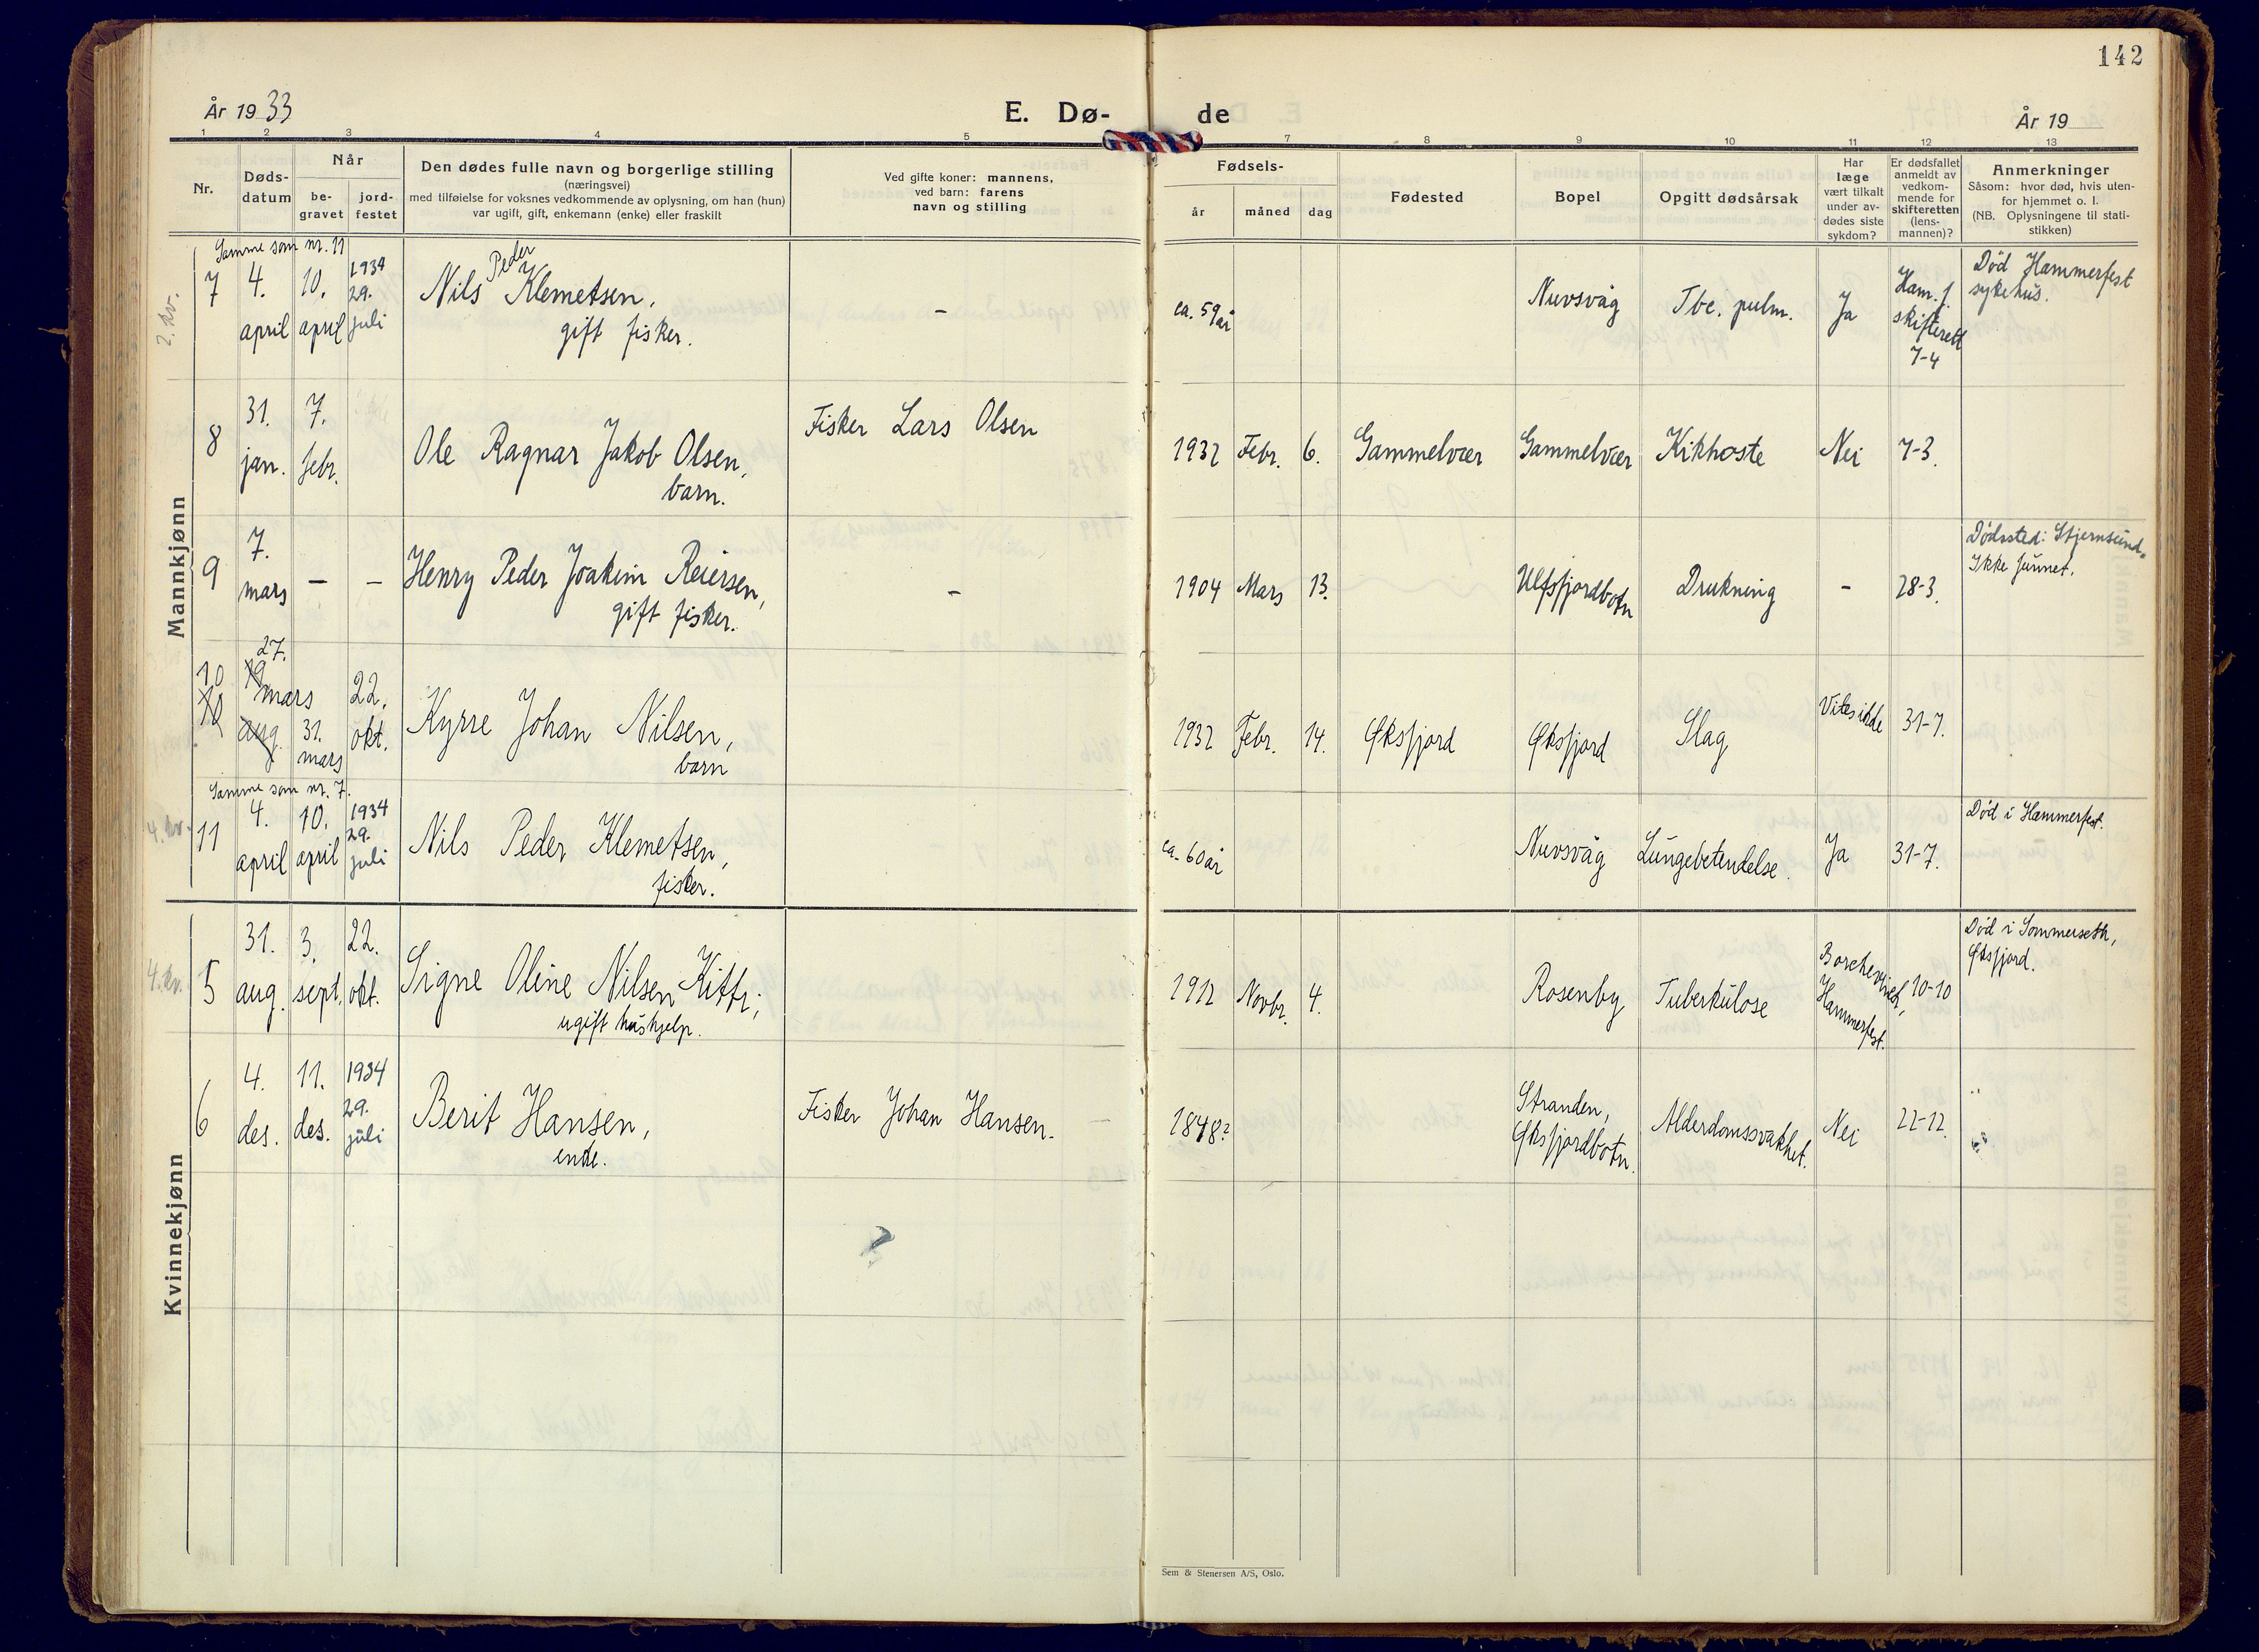 142
År 1933
E. Dø-
de
År 19
1 2 3 4 5 7 8 9 10 11 12 13
Nr.
Døds-
datum
Når
be-
gravet
jord-
festet
Den dødes fulle navn og borgerlige stilling
(næringsvei)
med tilføielse for voksnes vedkommende av oplysning, om han (hun)
var ugift, gift, enkemann (enke) eller fraskilt
Ved gifte koner: mannens,
ved barn: farens
navn og stilling
Fødsels-
år måned dag
Fødested
Bopel
Opgitt dødsårsak
Har
læge
vært tilkalt
under av-
dødes siste
sykdom?
Er dødsfallet
anmeldt av
vedkom-
mende for
skifteretten
(lens-
mannen)?
Anmerkninger
Såsom: hvor død, hvis uten-
for hjemmet o. l.
(NB. Oplysningene til stati-
stikken)
Mannkjønn
2. kv.
Samme som nr. 11
7 4. april 10. april 1934 29. juli
Nils Peder Klemetsen,
gift fisker.
-
ca. 59 år
Nuvsvåg
Tbc. pulm.
Ja
Ham.f.
skifterett
7-4
Død Hammerfest
sykehus.
8 31. jan. 7. febr.
Ole Ragnar Jakob Olsen,
barn.
Fisker Lars Olsen
1932 Febr. 6. Gammelvær Gammelvær Kikhoste Nei 7-3.
9 7. mars - -
Henry Peder Joakim Reiersen,
gift fisker.
-
1904 Mars 13. Ulfsfjordbotn Drukning - 28-3.
Dødssted: Stjernsund.
Ikke funnet.
10 10 27. 19. mars aug. 31. mars 22. okt.
Kyrre Johan Nilsen,
barn
1932 Febr. 14. Øksfjord Øksfjord Slag Vites ikke 31-7.
4. kv.
Samme som nr. 7.
11 4. april 10. april 1934 29. juli
Nils Peder Klemetsen,
fisker.
ca. 60 år Nuvsvåg Lungebetendelse. Ja 31-7.
Død i Hammerfest.
Kvinnekjønn
4. kv.
5 31. aug. 3. sept. 22. okt.
Signe Oline Nilsen Kitti,
ugift hushjelp.
1912 Novbr. 4. Rosenby Tuberkulose
Borchgrevink,
Hammerfest.
10-10
Død i Sommerseth,
Øksfjord.
6 4. des. 11. des. 1934 29. juli
Berit Hansen,
enke.
Fisker Johan Hansen.
1848?
Stranden,
Øksfjordbotn.
Alderdomssvakhet.
Nei 22-12.
Sem & Stenersen A/S, Oslo.